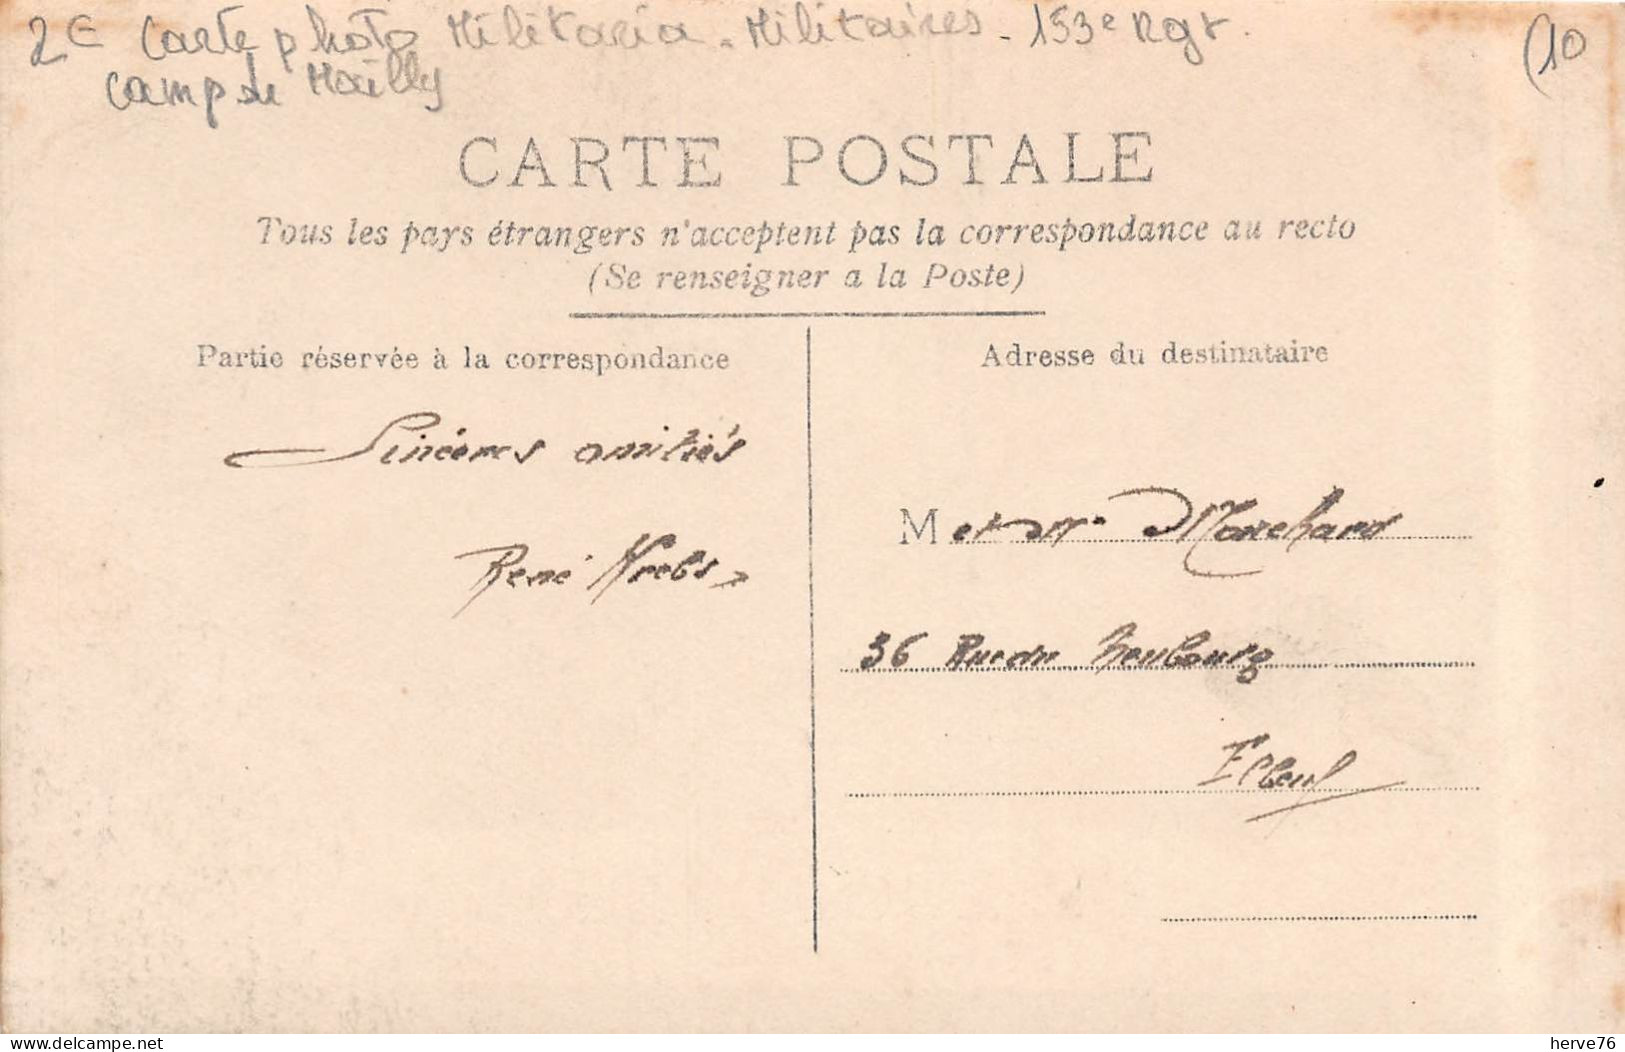 2€ Carte photo Militaria - Militaires - 153e Rgt
(10
Camp de Mailly
CARTE POSTALE
Tous les pays étrangers n'acceptent pas la correspondance au recto
(Se renseigner a la Poste)
Partie réservée à la correspondance
Adresse du destinataire
Sincères amitiés
M et Mme Marchand
René Krebs
36 Rue du Neubourg
Elbeuf
herve76